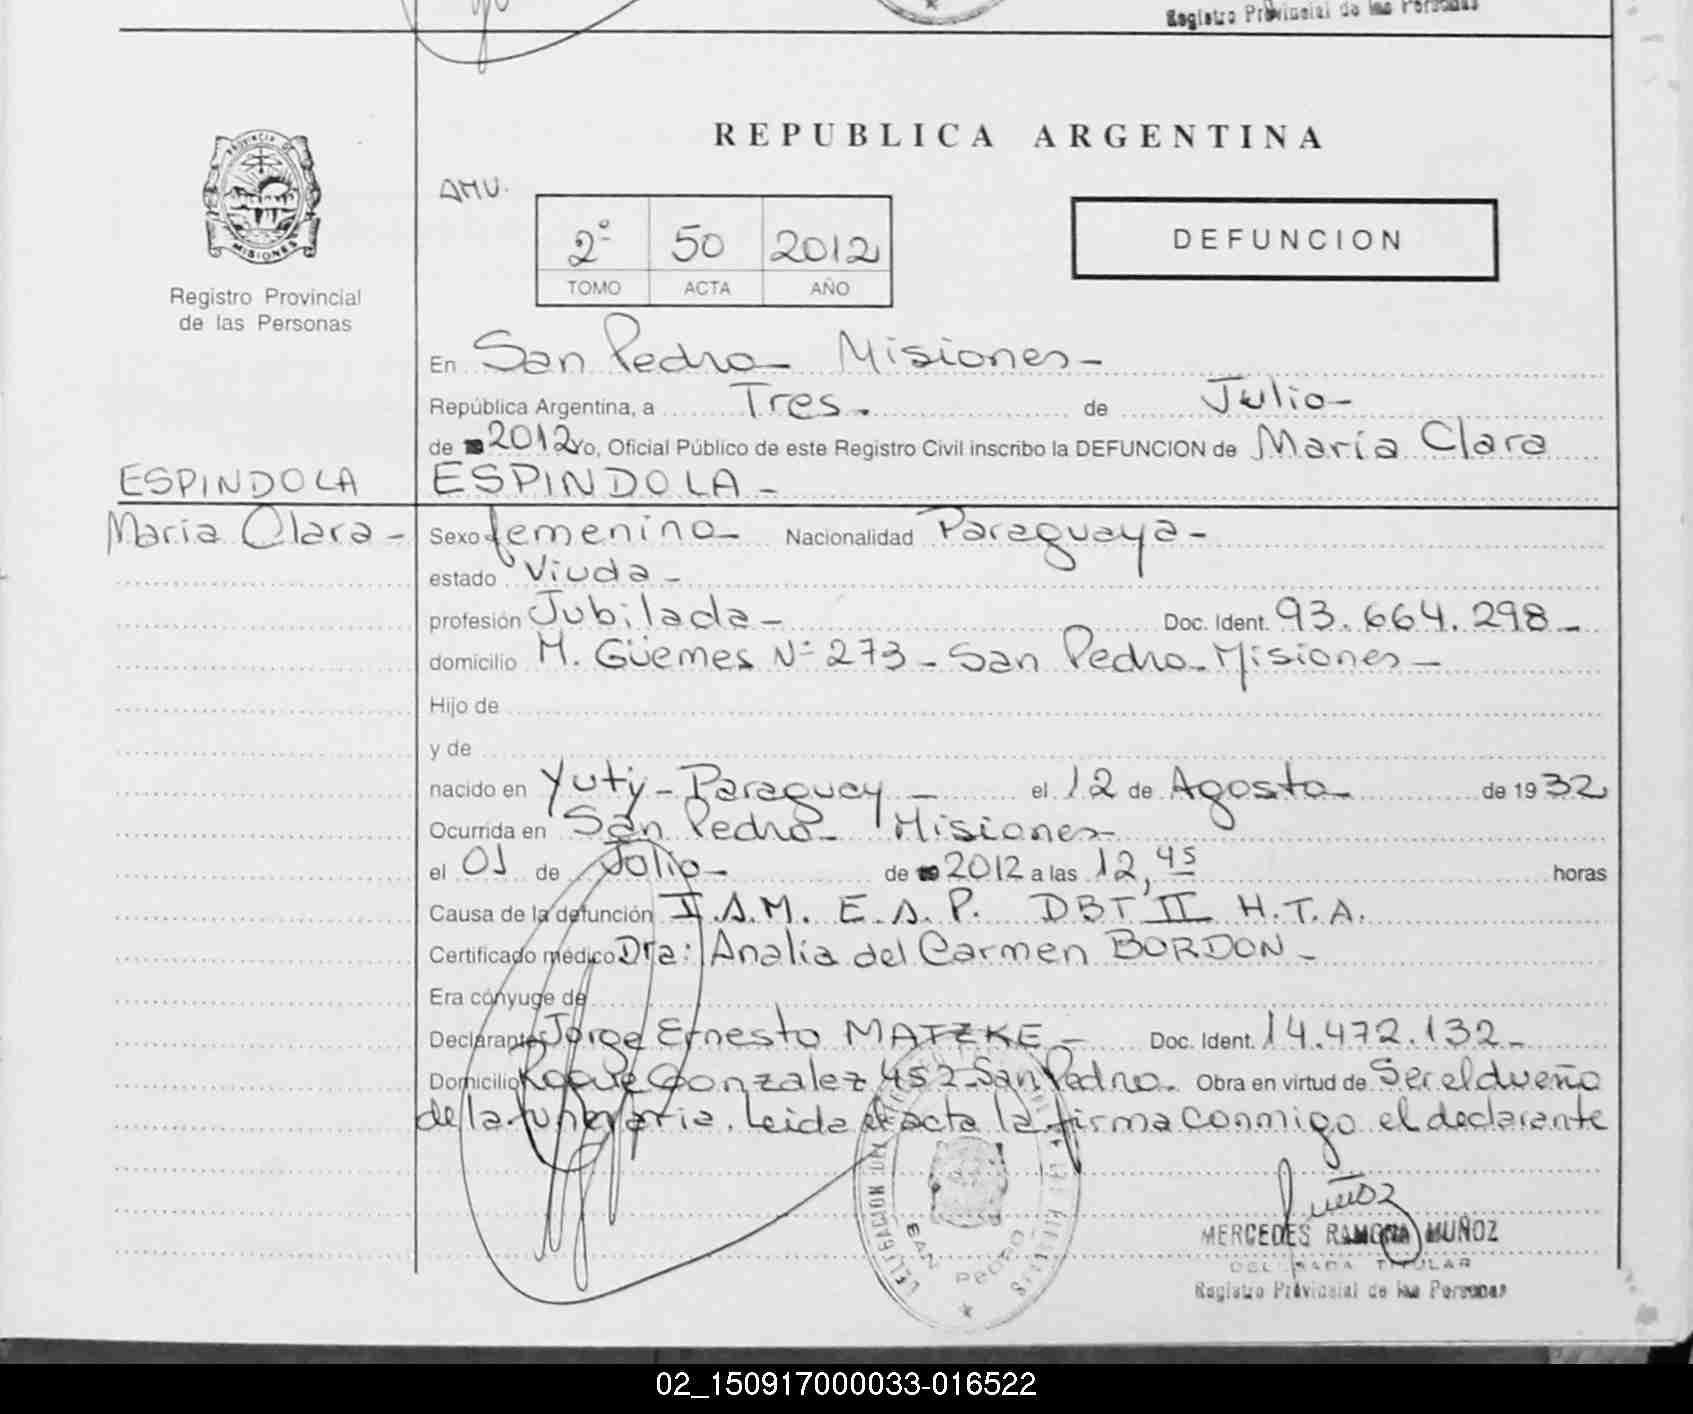 Registro Provincial de las Personas
REPUBLICA ARGENTINA
AMU.
2º 50 2012
TOMO ACTA AÑO
DEFUNCION
PROVINCIA DE
MISIONES
Registro Provincial
de las Personas
En San Pedro - Misiones -
República Argentina, a Tres. de Julio -
de 2012 Yo, Oficial Público de este Registro Civil inscribo la DEFUNCION de María Clara
ESPINDOLA ESPINDOLA -
Maria Clara - Sexo femenino - Nacionalidad Paraguaya -
estado Viuda -
profesión Jubilada - Doc. Ident. 93.664.298 -
domicilio M. Güemes Nº 273 - San Pedro - Misiones -
Hijo de
y de
nacido en Yuty - Paraguay - el 12 de Agosto - de 1932
Ocurrida en San Pedro - Misiones -
el 01 de Julio - de 2012 a las 12,45 horas
Causa de la defunción I.A.M. E.A.P. DBT II H.T.A.
Certificado médico Dra: Analía del Carmen BORDON -
Era cónyuge de
Declarante Jorge Ernesto MATZKE - Doc. Ident. 14.472.132 -
Domicilio Roque Gonzalez 452 - San Pedro - Obra en virtud de Ser el dueño
de la funeraria. Leida el acta la firma conmigo el declarante
Muñoz
MERCEDES RAMONA MUÑOZ
DELEGADA TITULAR
Registro Provincial de las Personas
DELEGACION DEL
SAN PEDRO
02_150917000033-016522